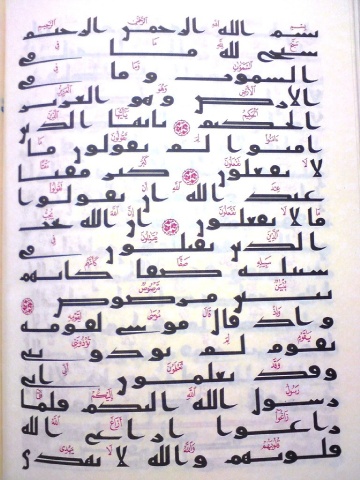 بسم الله الرحمن الرحيم
سبح لله ما في
السموت وما في
الارض وهو العزيز
الحكيم يايها الذين
امنوا لم تقولون ما
لا تفعلون كبر مقتا
عند الله ان تقولوا
ما لا تفعلون ان الله يحب
الذين يقتلون في
سبيله صفا كانهم
بنين مرصوص
واذ قال موسى لقومه
يقوم لم تؤذونني
وقد تعلمون اني
رسول الله اليكم فلما
زاغوا ازاغ الله
قلوبهم والله لا يهدي